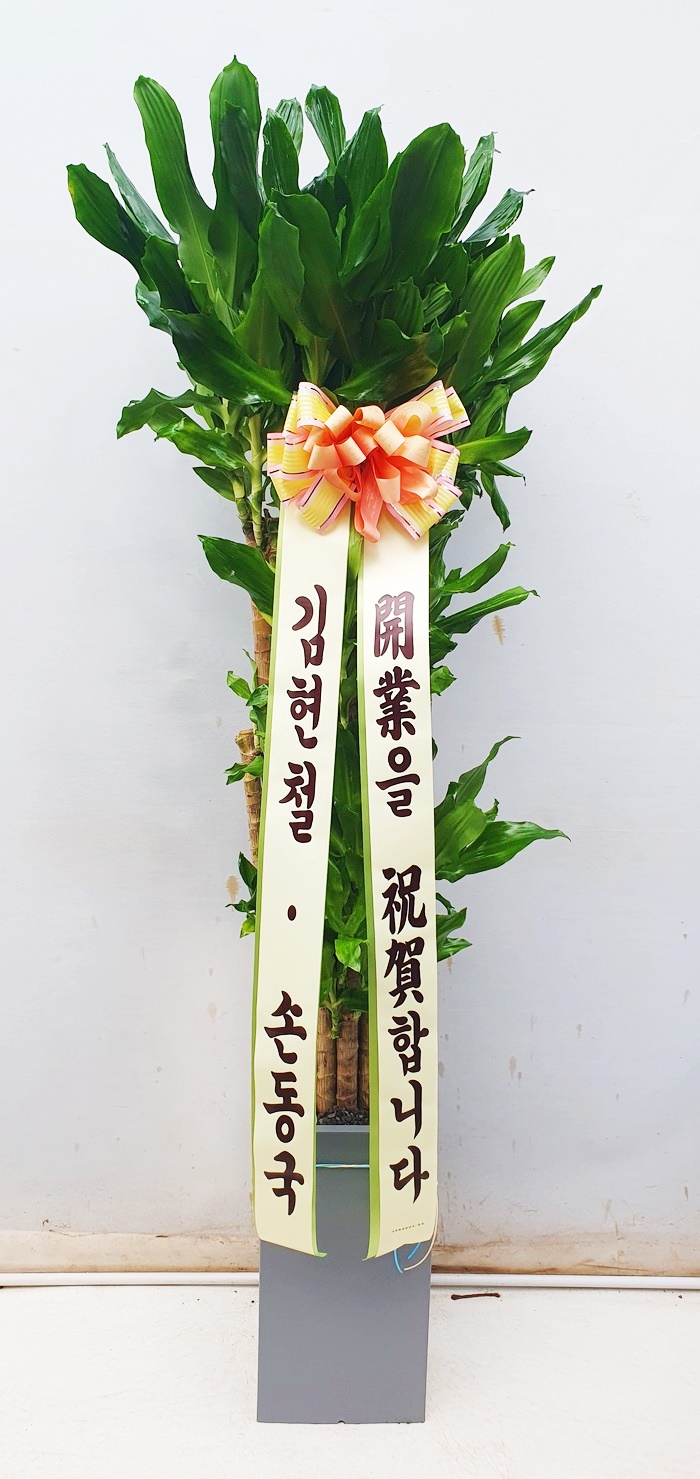 開業을 祝賀합니다
김현철 · 손동국